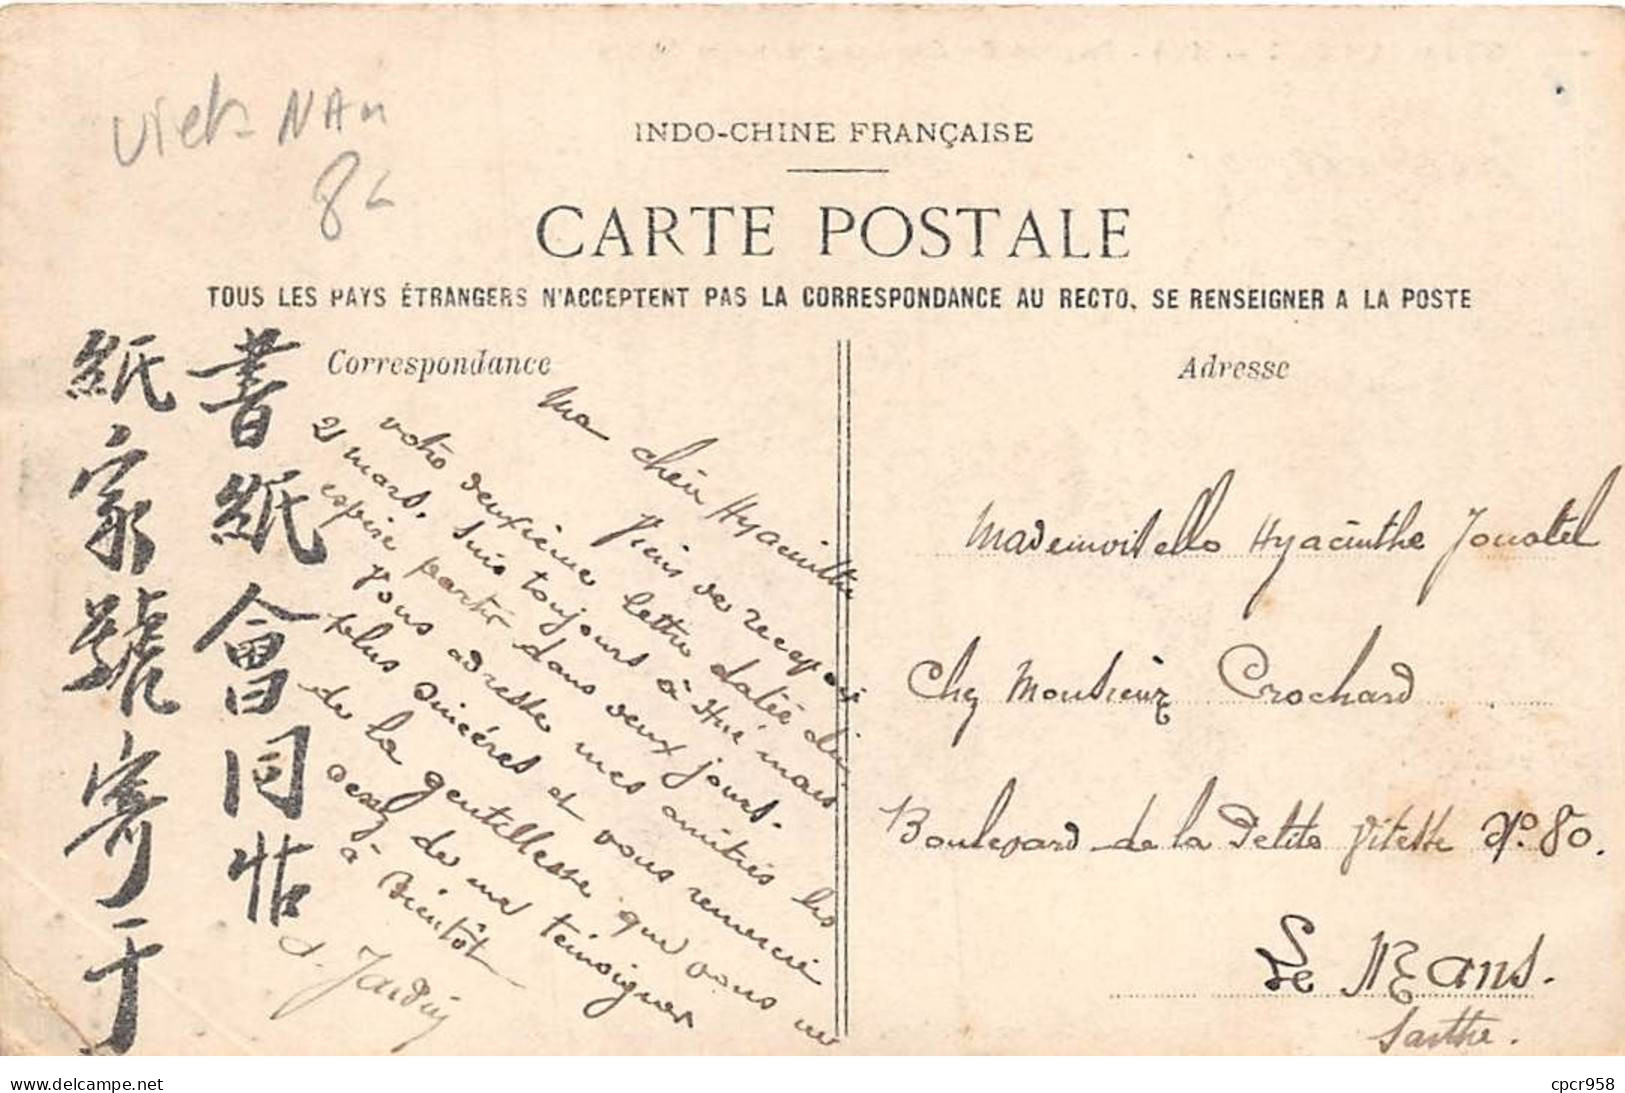 Viet-NAm
8€
INDO-CHINE FRANÇAISE
CARTE POSTALE
TOUS LES PAYS ÉTRANGERS N'ACCEPTENT PAS LA CORRESPONDANCE AU RECTO. SE RENSEIGNER A LA POSTE
Correspondance
Adresse
書紙會同帖
紙家號寄于
Ma chère Hyacinthe
Viens de recevoir
votre deuxième lettre datée du
21 mars. Suis toujours à Hué mais
espère partir dans deux jours.
Vous adresse mes amitiés les
plus sincères et vous remercie
de la gentillesse que vous ne
cessez de me témoigner
à Bientôt
J. Jardin
Mademoiselle Hyacinthe
Chez Monsieur Crochard
Boulevard de la Petite Vitesse No 80.
Le Mans.
Sarthe.
www.delcampe.net
cpcr958